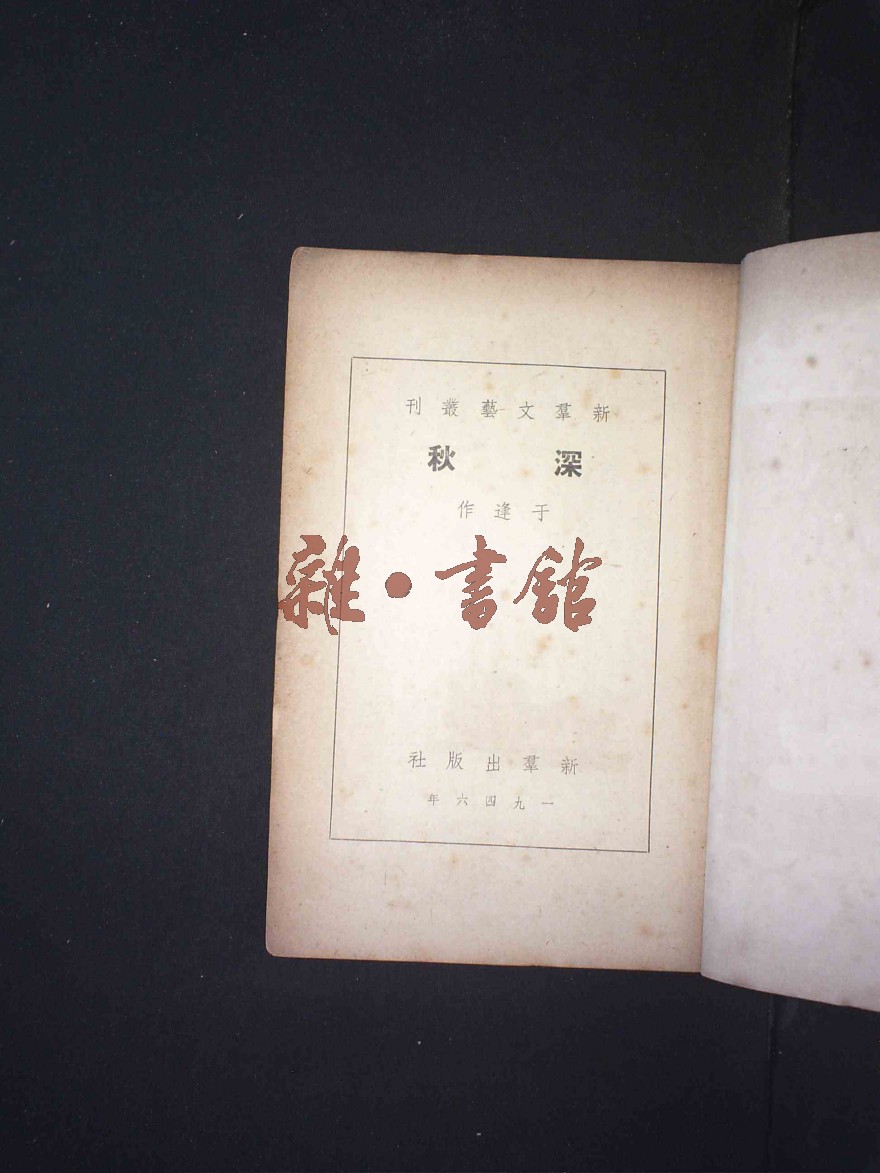 新羣文藝叢刊
深秋
于逢作
雜·書館
新羣出版社
一九四六年